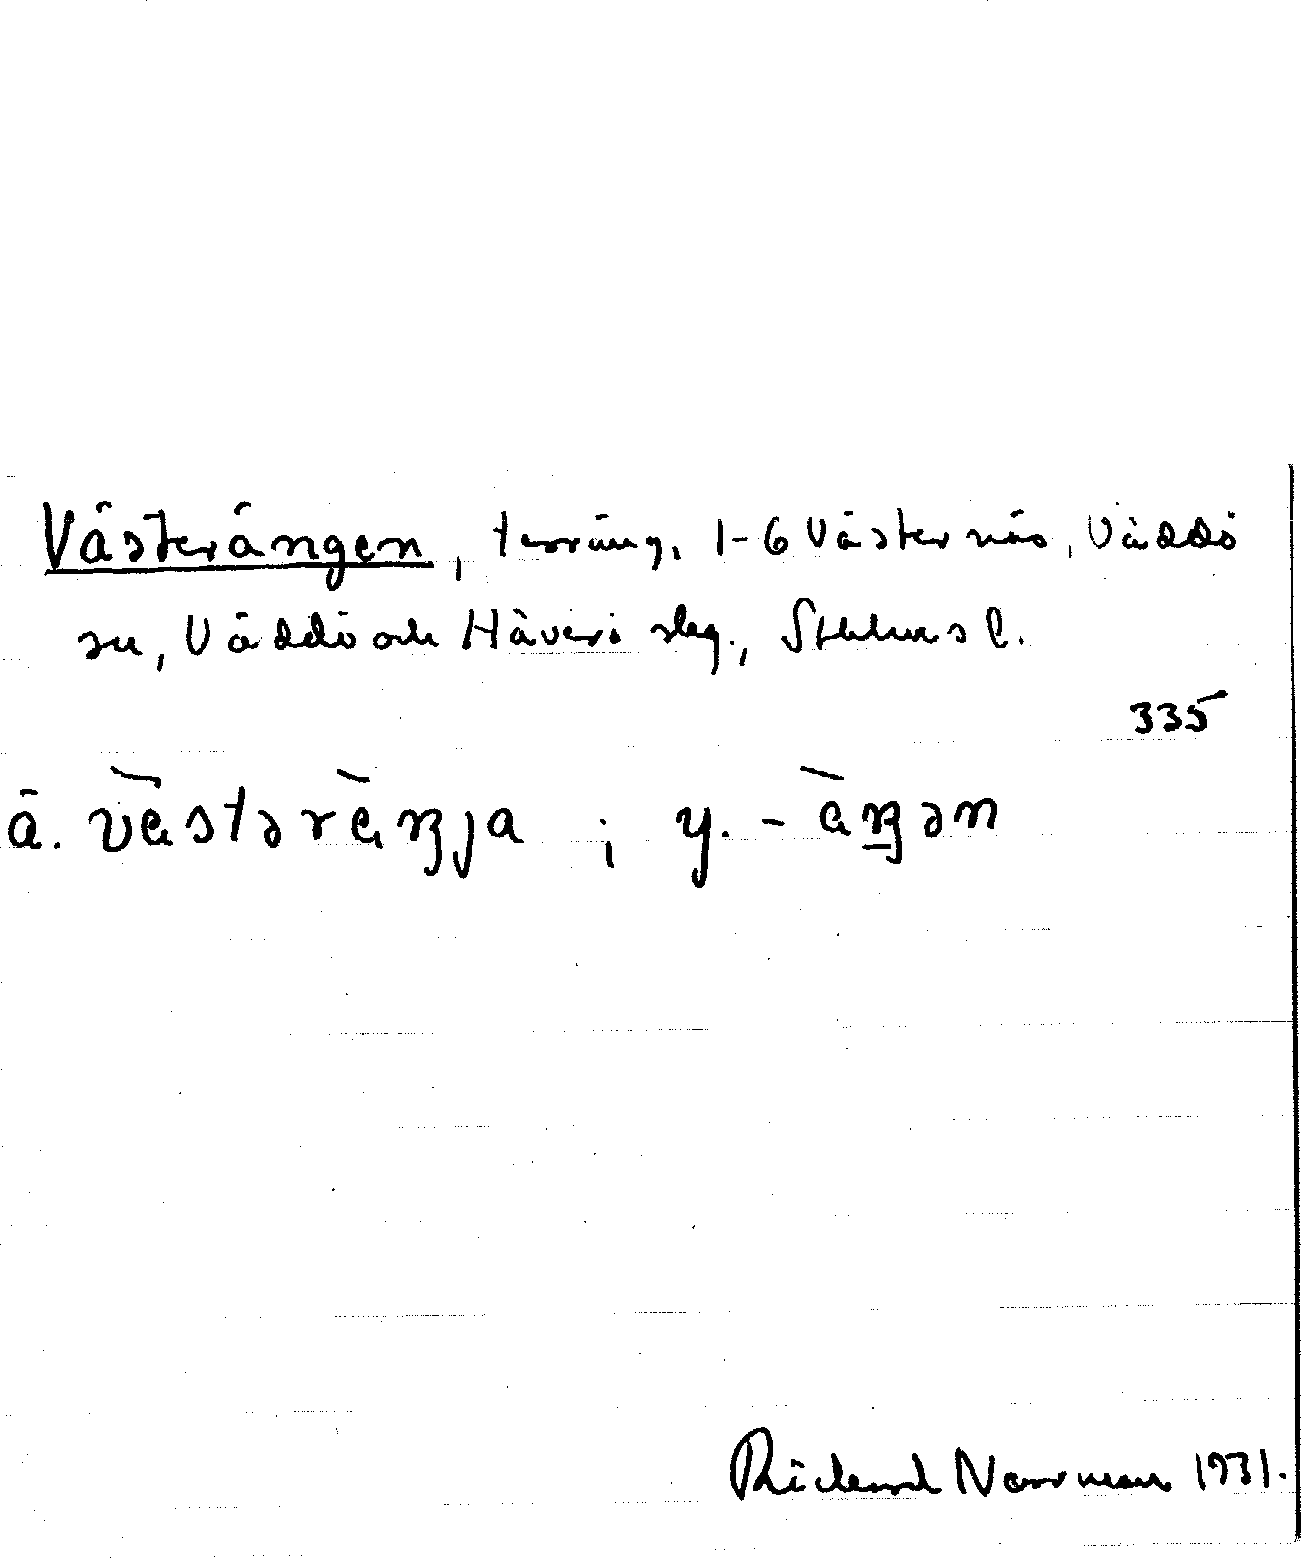 Västerängen, terräng, 1-6 Västernäs, Väddö
sn, Väddö och Häverö skg., Sthlms l.
335
ä. v̀ästəràŋja ; y. -àŋən
Richard Norrman 1931.